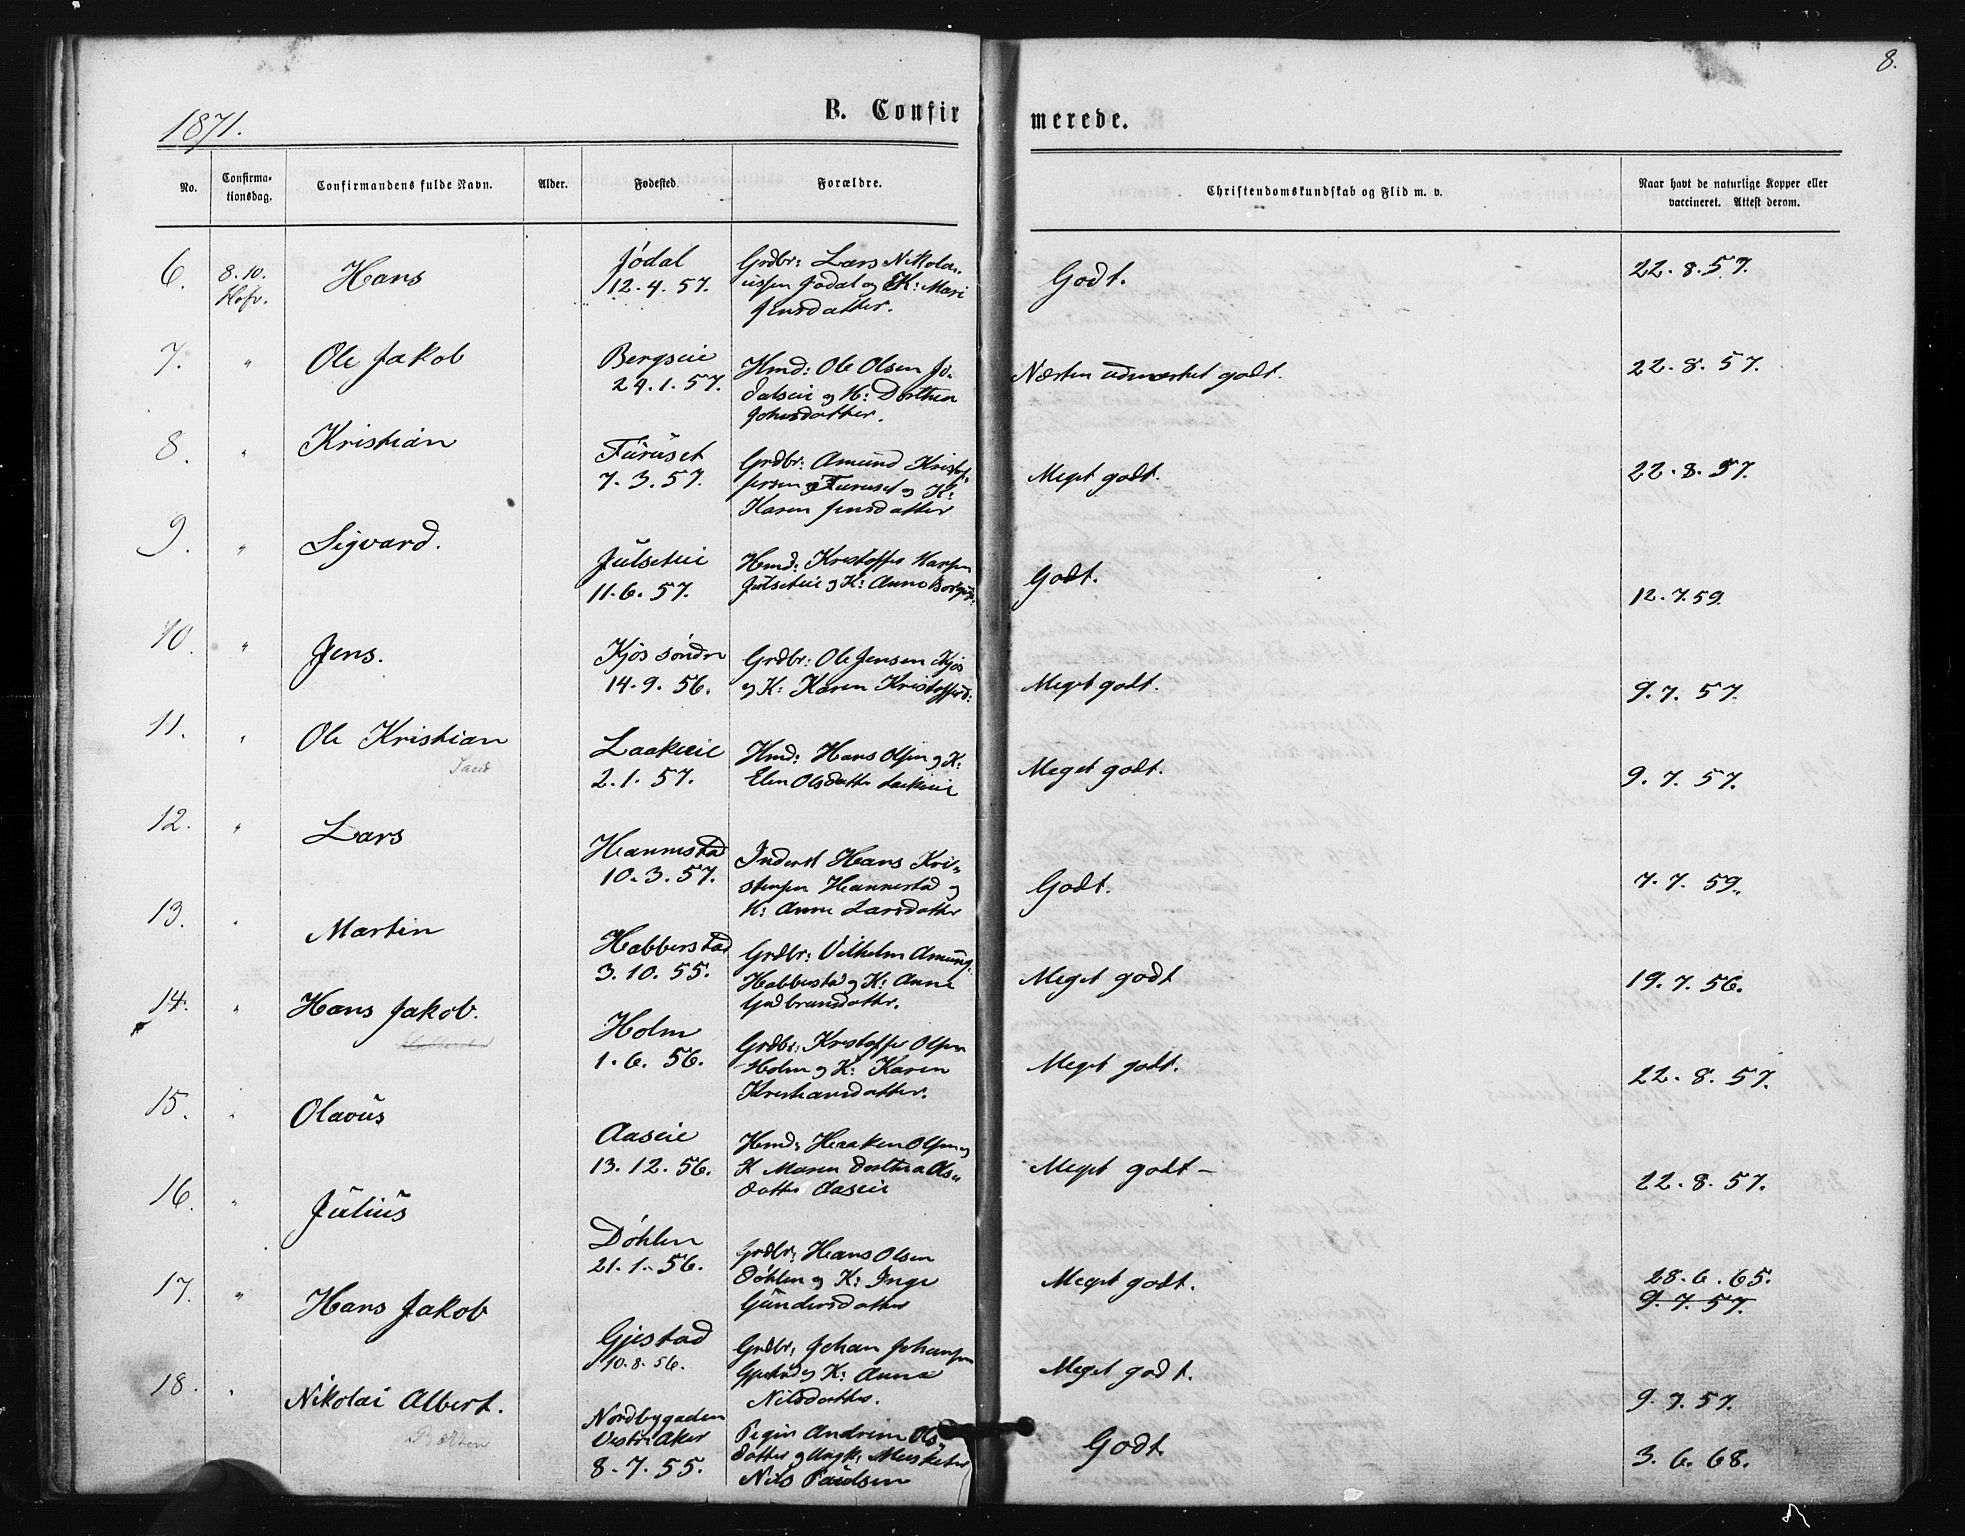 8.
1871.
B. Confirmerede.
No.
Confirma-
tionsdag.
Confirmandens fulde Navn.
Alder.
Fødested.
Forældre.
Christendomskundskab og Flid m. v.
Naar havt de naturlige Kopper eller
vaccineret. Attest derom.
6. 8. 10. Hans Jødal Grdbr: Lars Nikolai-
12. 4. 57. Jødal og K: Mari
Jensdatter.
Godt. 22. 8. 57.
7. " Ole Jakob Bergseie Hmd: Ole Olsen Jø-
24. 1. 57. dalseie og K: Dorthea
Johnsdatter.
Næsten udmærket godt. 22. 8. 57.
8. " Kristian Furuset Grdbr: Amund Kristof-
7. 3. 57. fersen Furuset og K:
Karen Jensdatter
Meget godt. 22. 8. 57.
9. " Sigvard. Julseteie Hmd: Kristoffer Hansen
11. 6. 57. Julseteie og K: Anne
Godt. 12. 7. 59.
10. " Jens. Kjos søndre Grdbr: Ole Jensen Kjos
14. 9. 56. og K: Karen Kristoffersd:
Meget godt. 9. 7. 57.
11. " Ole Kristian Laakeeie Hmd: Hans Olsen og K:
2. 1. 57. Elen Olsdatter
Meget godt. 9. 7. 57.
12. " Lars Hannestad Inderst Hans Kri-
10. 3. 57. stensen Hannestad og
K: Anne Larsdatter
Godt. 7. 7. 59.
13. " Martin Habberstad Grdbr: Vilhelm
3. 10. 55. Habberstad og K: Anne
Gudbransdatter.
Meget godt 19. 7. 56.
14. " Hans Jakob. Holm Grdbr: Kristoffer Olsen
1. 6. 56. Holm og K: Karen
Kristiansdatter.
Meget godt. 22. 8. 57.
15. " Olavus Aaseie Hmd: Haaken Olsen og
13. 12. 56. K Maren Dorthea Ols-
datter Aaseie
Meget godt – 22. 8. 57.
16. " Julius Døhlen Grdbr: Hans Olsen
21. 1. 56. Døhlen og K: Inge
Gundersdatter
Meget godt. 28. 6. 65.
9. 7. 57.
17. " Hans Jakob Gjestad Grdbr: Johan Johansen
10. 8. 56. Gjestad og K: Anne
Nilsdatter.
Meget godt. 9. 7. 57.
18. " Nikolai Albert. Nordbygaden Pigen Andrine Ols-
Vestre Aker datter og Ungk: Musketer
8. 7. 55. Nils Paulsen
Godt. 3. 6. 68.